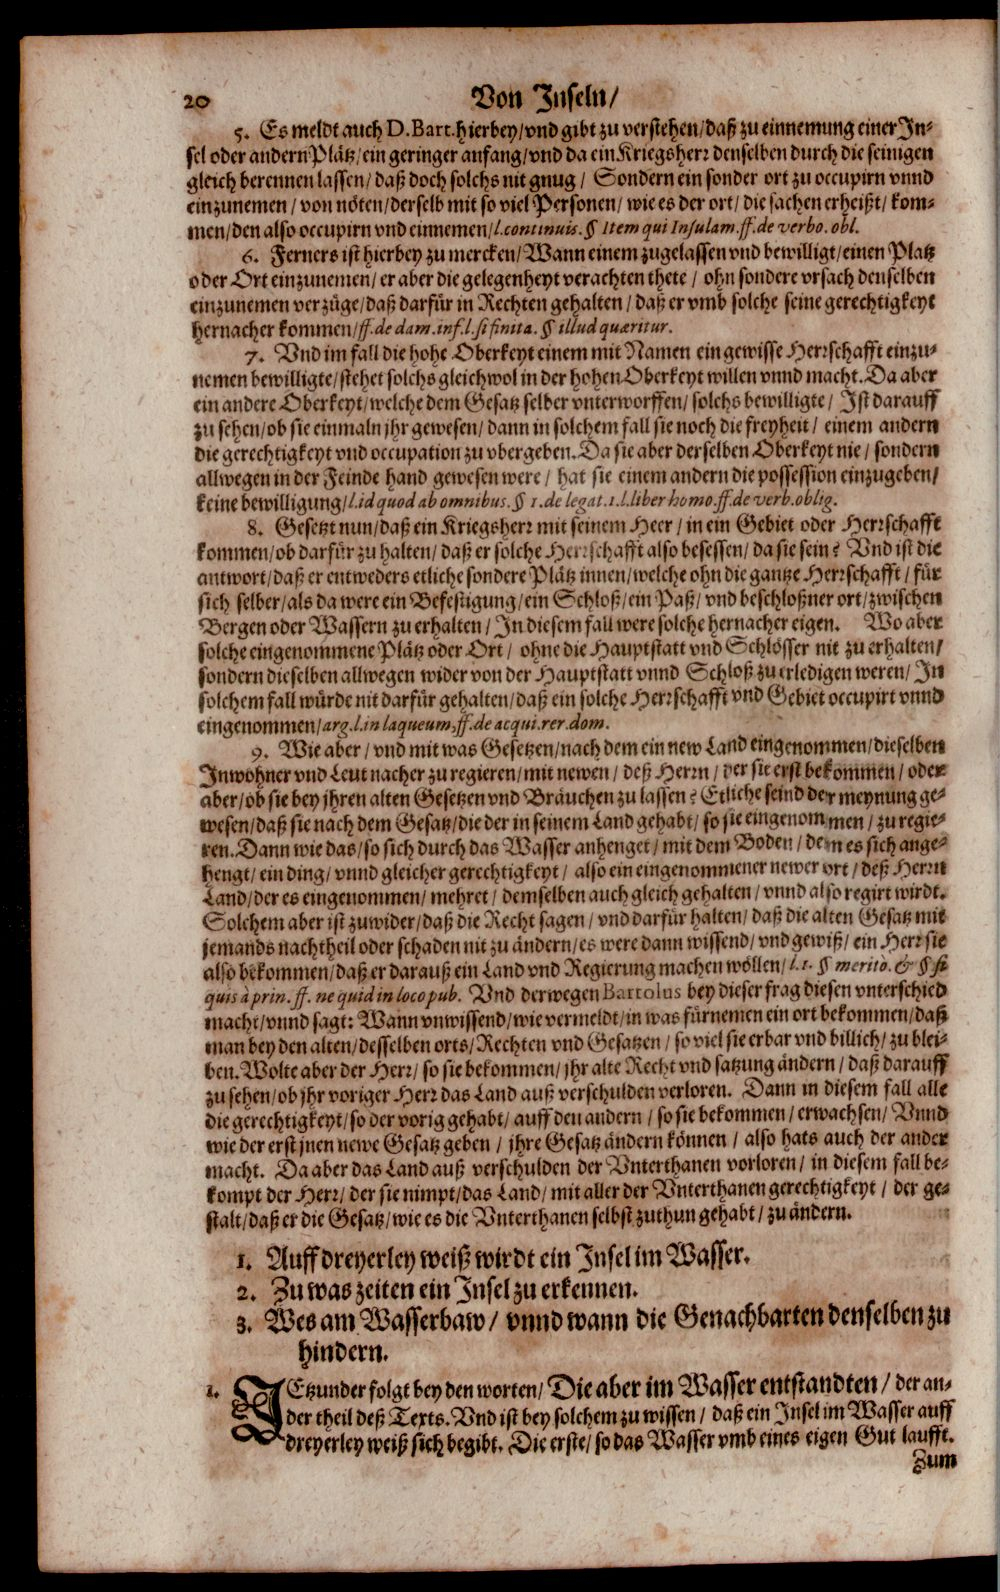 20 Von Inseln/
5. Es meldt auch D. Bart. hierbey/vnd gibt zu verstehen/daß zu einnemung einer In-
sel oder andern Plätz/ein geringer anfang/vnd da ein Kriegsherr denselben durch die seinigen
gleich berennen lassen/daß doch solchs nit gnug/ Sondern ein sonder ort zu occupirn vnnd
einzunemen/von nöten/derselb mit so viel Personen/wie es der ort/die sachen erheißt/kom-
men/den also occupirn vnd einnemen/l. continuis. § Item qui Insulam. ff. de verbo. obl.
6. Ferners ist hierbey zu mercken/Wann einem zugelassen vnd bewilligt/einen Platz
oder Ort einzunemen/er aber die gelegenheyt verachten thete/ohn sondere vrsach denselben
einzunemen verzüge/daß darfür in Rechten gehalten/daß er vmb solche seine gerechtigkeyt
hernacher kommen/ff. de dam. inf. l. si finita. § illud quæritur.
7. Vnd im fall die hohe Oberkeyt einem mit Namen ein gewisse Herrschafft einzu-
nemen bewilligte/stehet solchs gleichwol in der hohen Oberkeyt willen vnnd macht. Da aber
ein andere Oberkeyt/welche dem Gesatz selber vnterworffen/solchs bewilligte/ Ist darauff
zu sehen/ob sie einmaln jhr gewesen/dann in solchem fall sie noch die freyheit/einem andern
die gerechtigkeyt vnd occupation zu vbergeben. Da sie aber derselben Oberkeyt nie/sondern
allwegen in der Feinde hand gewesen were/hat sie einem andern die possession einzugeben/
keine bewilligung/l. id quod ab omnibus. § 1. de legat. 1. l. liber homo. ff. de verb. oblig.
8. Gesetzt nun/daß ein Kriegsherr mit seinem Heer/in ein Gebiet oder Herrschafft
kommen/ob darfür zu halten/daß er solche Herrschafft also besessen/da sie sein? Vnd ist die
antwort/daß er entweders etliche sondere Plätz innen/welche ohn die gantze Herrschafft/für
sich selber/als da were ein Befestigung/ein Schloß/ein Paß/vnd beschloßner ort/zwischen
Bergen oder Wassern zu erhalten/In diesem fall were solche hernacher eigen. Wo aber
solche eingenommene Plätz oder Ort/ohne die Hauptstatt vnd Schlösser nit zu erhalten/
sondern dieselben allwegen wider von der Hauptstatt vnnd Schloß zu erledigen weren/In
solchem fall würde nit darfür gehalten/daß ein solche Herrschafft vnd Gebiet occupirt vnnd
eingenommen/arg. l. in laqueum, ff. de acqui. rer. dom.
9. Wie aber/vnd mit was Gesetzen/nach dem ein new Land eingenommen/dieselben
Inwohner vnd Leut nacher zu regieren/mit newen/deß Herrn/der sie erst bekommen/oder
aber/ob sie bey jhren alten Gesetzen vnd Bräuchen zu lassen? Etliche seind der meynung ge-
wesen/daß sie nach dem Gesatz/die der in seinem Land gehabt/so sie eingenommen/zu regie-
ren. Dann wie das/so sich durch das Wasser anhenget/mit dem Boden/dem es sich ange-
hengt/ein ding/vnnd gleicher gerechtigkeyt/also ein eingenommener newer ort/deß Herrn
Land/der es eingenommen/mehret/demselben auch gleich gehalten/vnnd also regirt wirdt.
Solchem aber ist zuwider/daß die Recht sagen/vnd darfür halten/daß die alten Gesatz mit
jemands nachtheil oder schaden nit zu ändern/es were dann wissend/vnd gewiß/ein Herr sie
also bekommen/daß er darauß ein Land vnd Regierung machen wöllen/l. 1. § meritò. & § si
quis à prin. ff. ne quid in loco pub. Vnd derwegen Bartolus bey dieser frag diesen vnterschied
macht/vnnd sagt: Wann vnwissend/wie vermeldt/in was fürnemen ein ort bekommen/daß
man bey den alten/desselben orts/Rechten vnd Gesatzen/so viel sie erbar vnd billich/zu blei-
ben. Wolte aber der Herr/so sie bekommen/jhr alte Recht vnd satzung ändern/daß darauff
zu sehen/ob jhr voriger Herr das Land auß verschulden verloren. Dann in diesem fall alle
die gerechtigkeyt/so der vorig gehabt/auff den andern/so sie bekommen/erwachsen/Vnnd
wie der erst jnen newe Gesatz geben/jhre Gesatz ändern können/also hats auch der ander
macht. Da aber das Land auß verschulden der Vnterthanen vorloren/in diesem fall be-
kompt der Herr/der sie nimpt/das Land/mit aller der Vnterthanen gerechtigkeyt/der ge-
stalt/daß er die Gesatz/wie es die Vnterthanen selbst zuthun gehabt/zu ändern.
1. Auff dreyerley weiß wirdt ein Insel im Wasser.
2. Zu was zeiten ein Insel zu erkennen.
3. Wes am Wasserbaw/vnnd wann die Genachbarten denselben zu
hindern.
1. IEtzunder folgt bey den worten/Die aber im Wasser entstandten/der an-
der theil deß Texts. Vnd ist bey solchem zu wissen/daß ein Insel im Wasser auff
dreyerley weiß sich begibt. Die erste/so das Wasser vmb eines eigen Gut laufft.
Zum